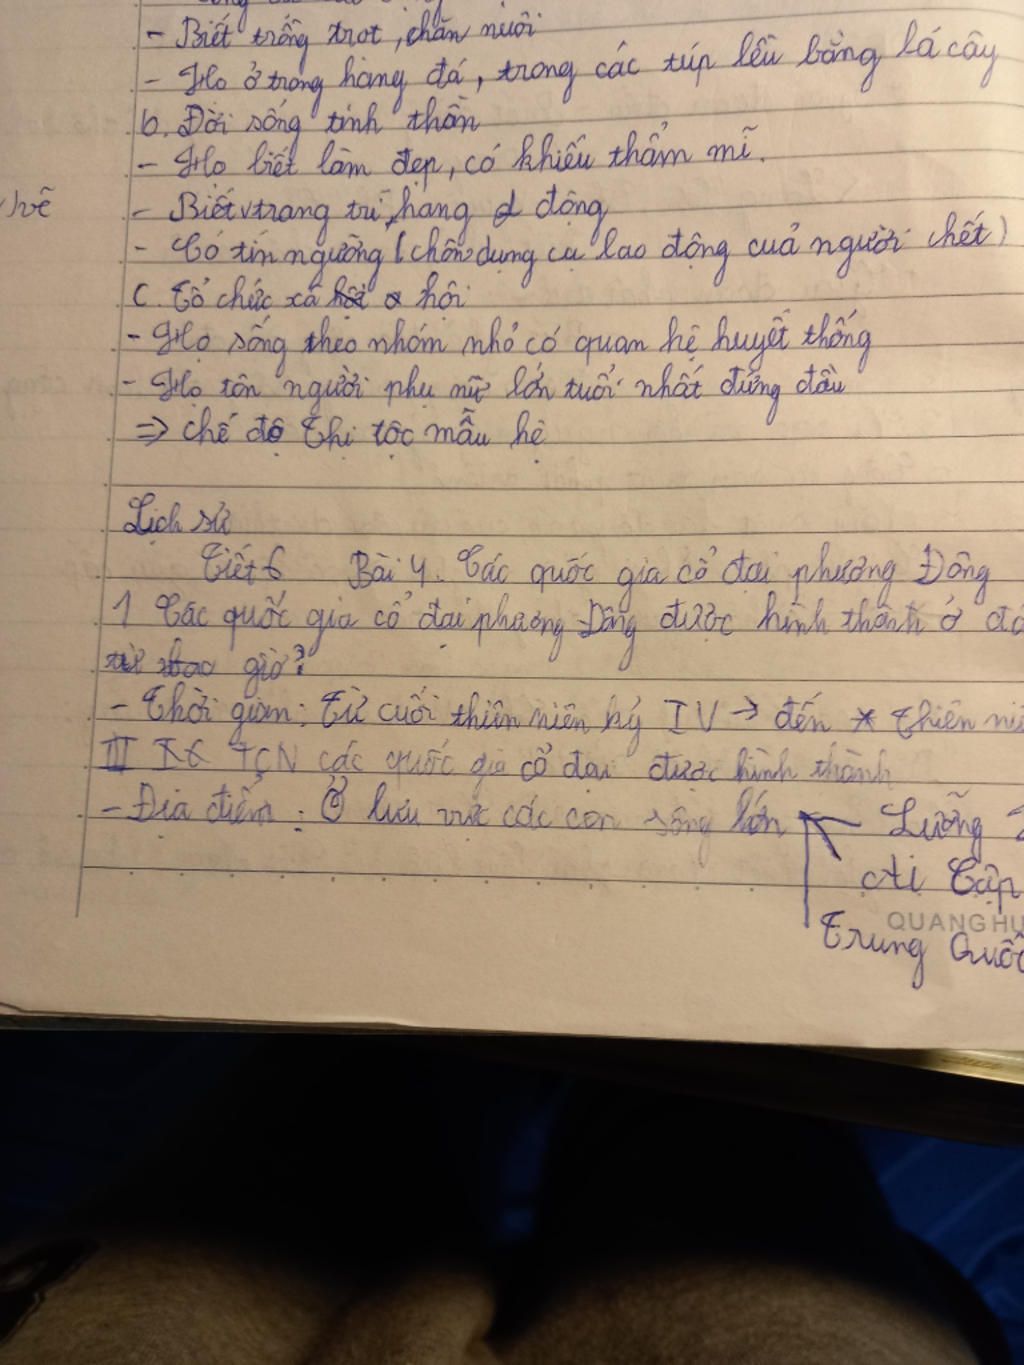 - Biết trồng trọt, chăn nuôi
- Họ ở trong hang đá, trong các túp lều bằng lá cây
b. Đời sống tinh thần
- Họ biết làm đẹp, có khiếu thẩm mĩ.
vẽ
- Biết v trang trí, hang động
- Có tín ngưỡng (chôn dụng cụ lao động cuả người chết)
c. Tổ chức xã hội
- Họ sống theo nhóm nhỏ có quan hệ huyết thống
- Họ tôn người phụ nữ lớn tuổi nhất đứng đầu
=> chế độ thị tộc mẫu hệ
Lịch sử
Tiết 6 Bài 4. Các quốc gia cổ đại phương Đông
1 Các quốc gia cổ đại phương Đông được hình thành ở đâ
từ bao giờ?
- Thời gian: Từ cuối thiên niên kỷ IV → đến thiên ni
III TCN các quốc gia cổ đại được hình thành
- Địa điểm: Ở lưu vực các con sông lớn Lưỡng
Ai Cập
QUANG HU
Trung Quốc